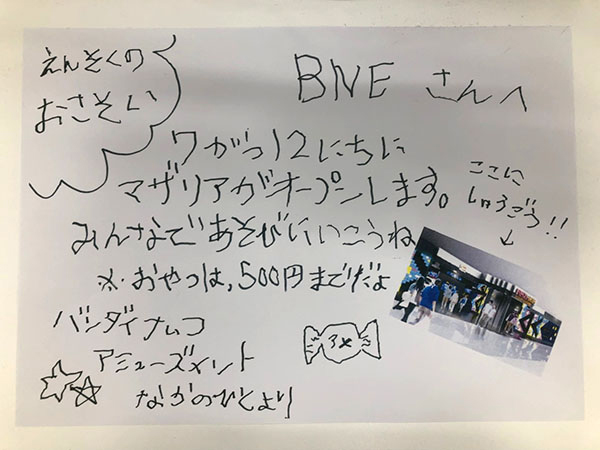 えんそくの
おさそい
BNE さんへ
7がつ12にちに
マザリアがオープンします。
みんなであそびにいこうね
※おやつは,500円までだよ
ここに
しゅうごう!!
↓
バンダイナムコ
アミューズメント
なかのひとより
アメ